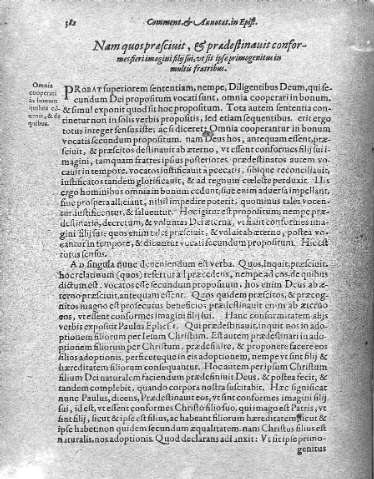 382 Comment. & Annotat. in Epist.
Nam quos præscivit, & prædestinavit confor-
mes fieri imagini filij sui, vt sit ipse primogenitus in
multis fratribus.
Omnia
cooperari
in bonum
quibus
PROBAT superiorem sententiam, nempe, Diligentibus Deum, qui se-
cundum Dei propositum vocati sunt, omnia cooperari in bonum,
& simul exponit quid sit hoc propositum. Tota autem sententia con-
tinetur non in solis verbis propositis, sed etiam sequentibus. erit ergo
totus integer sensus iste, ac si diceret: Omnia cooperantur in bonum
vocatis secundum propositum. nam Deus hos, antequam essent, præ-
scivit, & præscitos destinavit ab æterno, vt essent conformes filij sui i-
magini, tanquam fratres ipsius posteriores. prædestinatos autem vo-
cavit in tempore, vocatos iustificavit à peccatis, sibique reconciliavit,
iustificatos tandem glorificavit, & ad regnum cæleste perduxit. His
ergo hominibus omnia in bonum cedunt, sive enim adversa impellant,
sive prospera alliciant, nihil impedire poterit, quominus tales vocen-
tur, iustificentur, & salventur. Hoc igitur est propositum; nempe præ-
destinatio, decretum, & voluntas Dei æterna, vt fiant conformes ima-
gini filij sui: quos enim tales præscivit, & voluit ab æterno, postea vo-
cantur in tempore, & dicuntur vocati secundum propositum. Hic est
totus sensus.
AD singula nunc deveniendum est verba. Quos. Inquit, præscivit,
hoc relativum (quos) refertur ad præcedens, nempe ad eos de quibus
dictum est. vocatos esse secundum propositum, hos enim Deus ab æ-
terno præscivit, antequam essent. Quos quidem præscitos, & præcog-
nitos magno est prosecutus beneficio; prædestinavit eos ab æterno
vt essent conformes imagini filij sui. Hanc conformitatem alijs
verbis exposuit Paulus Ephes. 1. Qui prædestinavit, inquit nos in ado-
ptionem filiorum per Iesum Christum. Est autem prædestinari in ado-
ptionem filiorum per Christum, præordinare, & proponere facere eos
filios adoptionis, perficereque in eis adoptionem, nempe vt sint filij &
hæreditatem filiorum consequantur. Hoc autem per ipsum Christum
filium Dei naturalem faciendum prædefinivit Deus, & postea fecit, &
tandem complebit, quando corpora nostra suscitabit. Hæc significat
nunc Paulus, dicens, Prædestinavit eos, vt sint conformes imagini filij
sui, id est, vt essent conformes Christo filio suo, qui imago est Patris, vt
sint filij, sicut & ipse est filius, ac habeant filiorum hæreditatem sicut &
ipse habet non quidem secundum æqualitatem. nam Christus filius est
naturalis, nos adoptionis. Quod declarans adiunxit: Vt sit ipse primo-
genitus